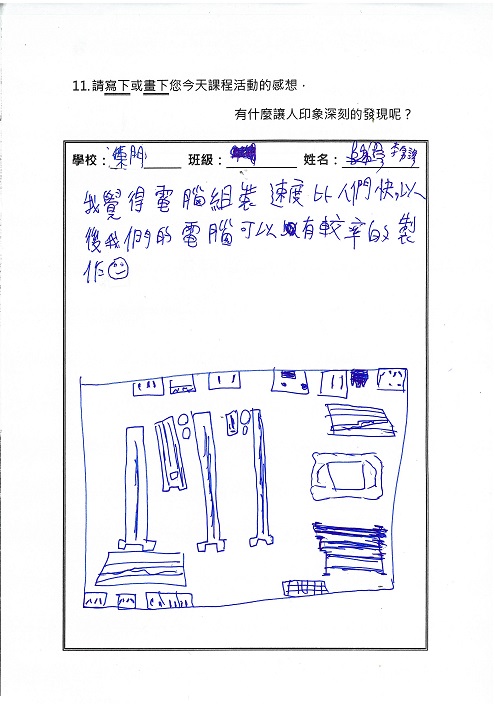 11.請寫下或畫下您今天課程活動的感想，
有什麼讓人印象深刻的發現呢？
學校： 東門 班級： 姓名：
我覺得電腦組裝速度比人們快,以
後我們的電腦可以有較率的製
作